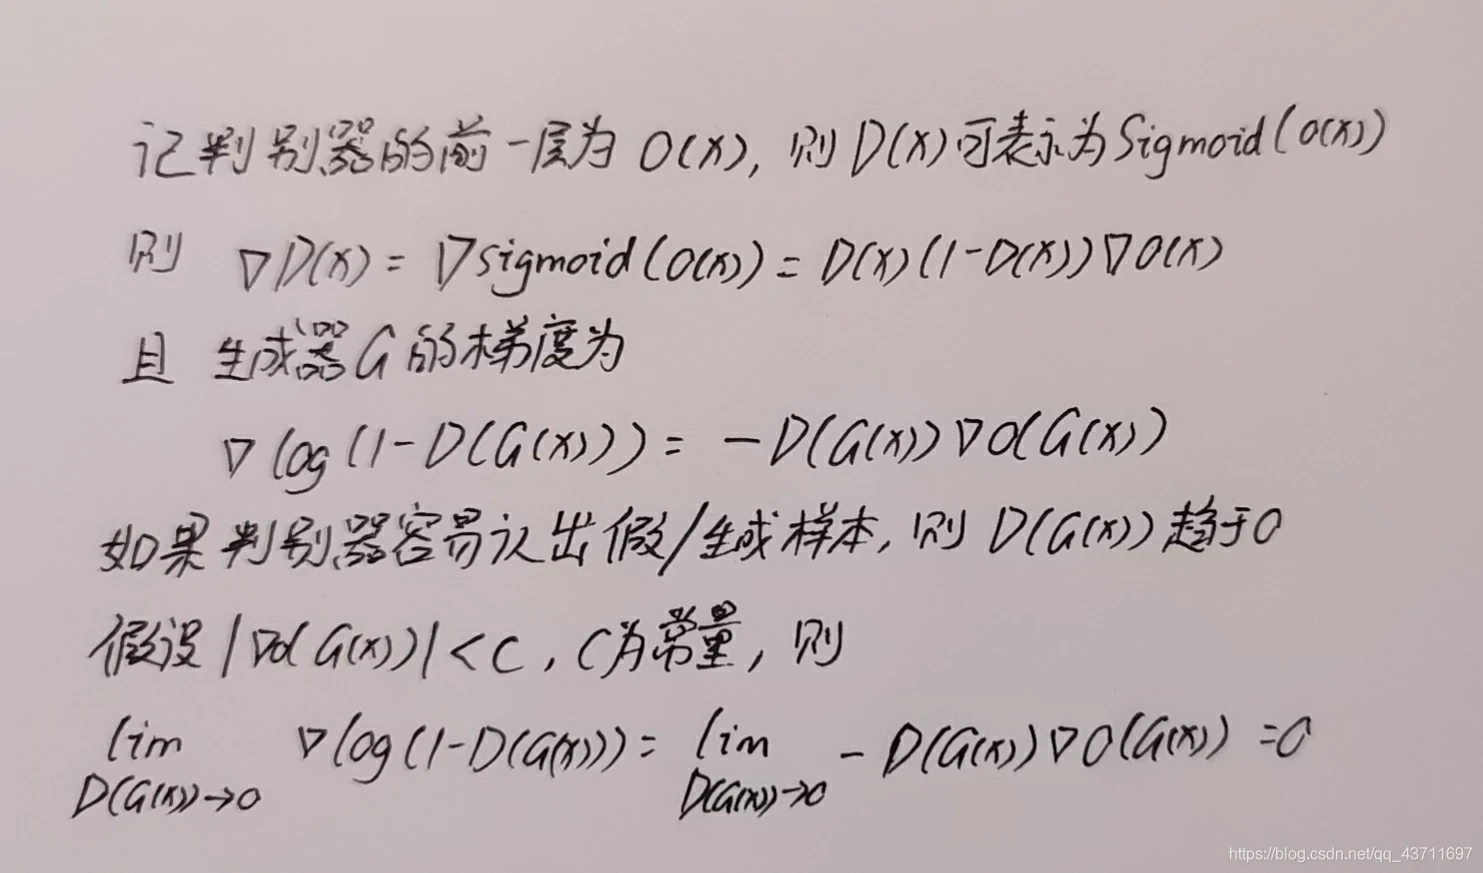 记判别器的前一层为 O(x), 则 D(x)可表示为Sigmoid(O(x))
则 ∇D(x) = ∇sigmoid(O(x)) = D(x)(1-D(x))∇O(x)
且 生成器G的梯度为
∇log(1-D(G(x))) = -D(G(x))∇O(G(x))
如果判别器容易认出假/生成样本, 则 D(G(x))趋于0
假设|∇O(G(x))|<C, C为常量, 则
lim ∇log(1-D(G(x))) = lim -D(G(x))∇O(G(x)) =0
D(G(x))→0 D(G(x))→0
https://blog.csdn.net/qq_43711697